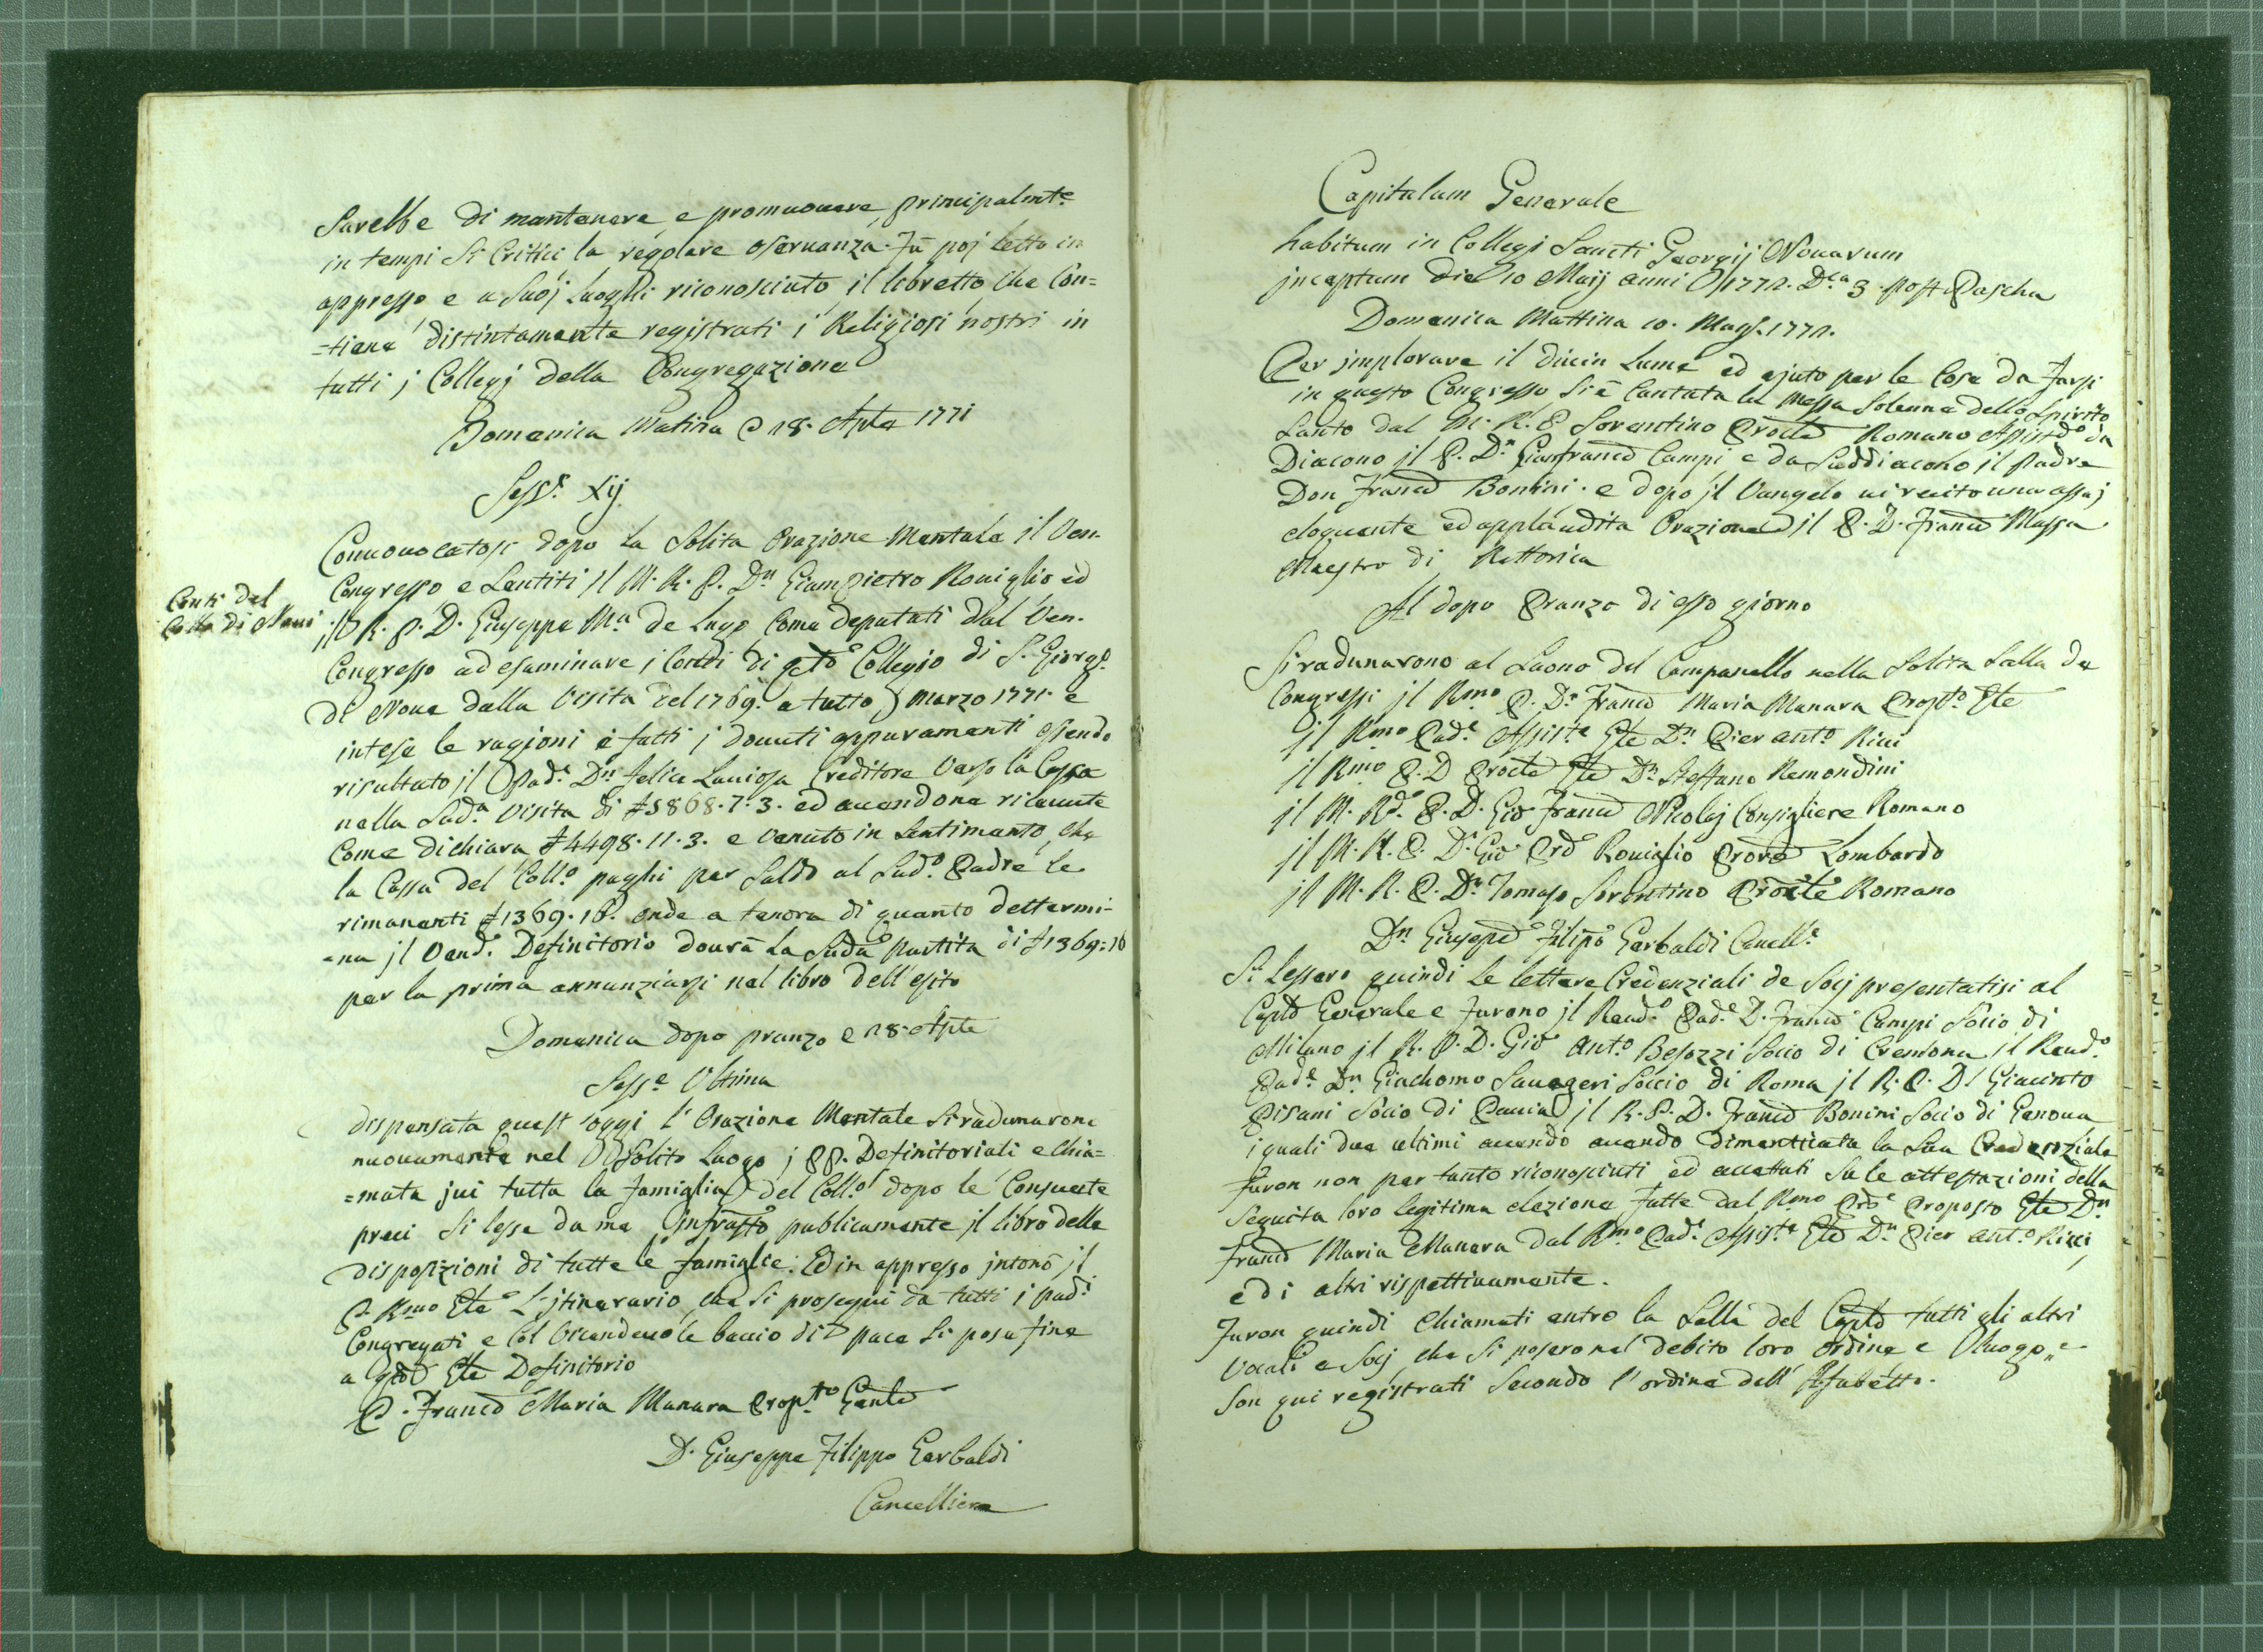 Sarebbe di mantenere, e promuovere principalmte
in tempi sì Critici la regolare osservanza. Fu poj letto in
appresso e a suoj luoghi riconosciuto il libretto che Con=
=tiene distintamente registrati i Religiosi nostri in
tutti j Collegj della Congregazione
Domenica Matina 28. Aple 1771
Sesse. Xij
Convocatosi dopo la Solita Orazione Mentale il Ven.
Congresso e Sentiti Jl M. R. P. Dn Giampietro Roviglio ed
Conti del
Collo di Novi
jl R. P. D. Giuseppe Ma de Lugo Come deputati dal Ven.
Congresso ad esaminare j Conti di qto Collegio di S. Giorgo
di Nove dalla Visita del 1769. a tutto Marzo 1771. e
intese le ragioni e fatti j dovuti appuramenti essendo
risultato jl Pade Dn Felice Laviosa Creditore Verso la Cassa
nella Suda Visita di ₤5868.7.3. ed avendone ricevute
Come dichiara ₤4498.11.3. e venuto in Sentimento, che
la Cassa del Collo paghi per Saldo al Sudo Padre le
rimanenti ₤1369.16. onde a tenore di quanto determi-
=na jl Vendo Definitorio dovrà la Suda Partita di ₤1369:16
per la prima annunziarsi nel libro dell'esito
Domenica dopo pranzo 28. Aple
Sesse Ultima
dispensata quest'oggi l'Orazione Mentale Si radunarono
nuovamente nel Solito Luogo j PP. Definitoriali e Chia=
=mata jvi tutta la Famiglia del Collo dopo le Consuete
preci Si lesse da me infratto publicamente jl libro delle
disposizioni di tutte le famiglie: Ed in appresso jntonò jl
P. Rmo Gle L'jtinerario, che Si proseguì da tutti i padi
Congregati e Col Vicendevole baccio di pace Si pose fine
a qto Gle Definitorio
D. Franco Maria Manara Propto Genle
D. Giuseppe Filippo Garbaldi
Cancelliere
Capitulum Generale
habitum in Collegj Sancti Georgij Novarum
jnceptum die 10 Maij anni 1772. Dca 3. post Pascha
Domenica Mattina 10. Magg. 1772.
Per jmplorare il divin Lume ed ajuto per le Cose da Farsi
in questo Congresso Si è Cantata la Messa Solenne dello Spirito
Santo dal M. R. P. Sorentino Procle Romano Assisto da
Diacono jl P. Dn Gianfranco Campi e da Suddiacono jl Padre
Don Franco Bonini. e dopo jl Vangelo vi recitò una assaj
eloquente ed applaudita Orazione jl P. D. Franco Massa
Maestro di Rettorica
Al dopo Pranzo di esso giorno
Si radunarono al Suono del Campanello nella Solita Salla de
Congressi jl Rmo P. Dn Franco Maria Manara Propto Gle
jl Rmo Pade Assiste Gle Dn Pier Anto Ricci
jl Rmo P. D Procle Gle Dn Steffano Remondini
jl M. Rdo P. D. Gio Franco Nicolaj Consigliere Romano
jl M. R. P. Dn Gio Pro Roviglio Prove Lombardo
jl M. R. P. Dn Tomaso Sorentino Procle Romano
Dn Giusepe Filipo Garbaldi Cancelle
Si Lessero quindi le lettere Credenziali de Socj presentatisi al
Caplo Generale e furono jl Revdo Pade D. Franco Campi Socio di
Milano jl R. P. D. Gio Anto Besozzi Socio di Cremona il Revdo
Pade Dn Giachomo Savageri Soccio di Roma jl R. P. D. Giacinto
Pisani Socio di Pavia jl R. P. D. Franco Bonini Socio di Genova
i quali due ultimi avendo avendo dimenticata la Sua Credenziale
Furon non pertanto riconosciuti, ed accettati Su le attestazioni della
Seguita loro legitima elezione fatte dal Rmo Pre Proposto Gle Dn
Franco Maria Manara dal Rmo Pade Assiste Gle Dn Pier Anto Ricci
e di altri rispettivamente.
Furon quindi Chiamati entro la Salla del Caplo tutti gli altri
Vocali e Socj che Si posero nel debito loro ordine e Luogo, e
Son qui registrati Secondo l'ordine dell'Alfabetto.